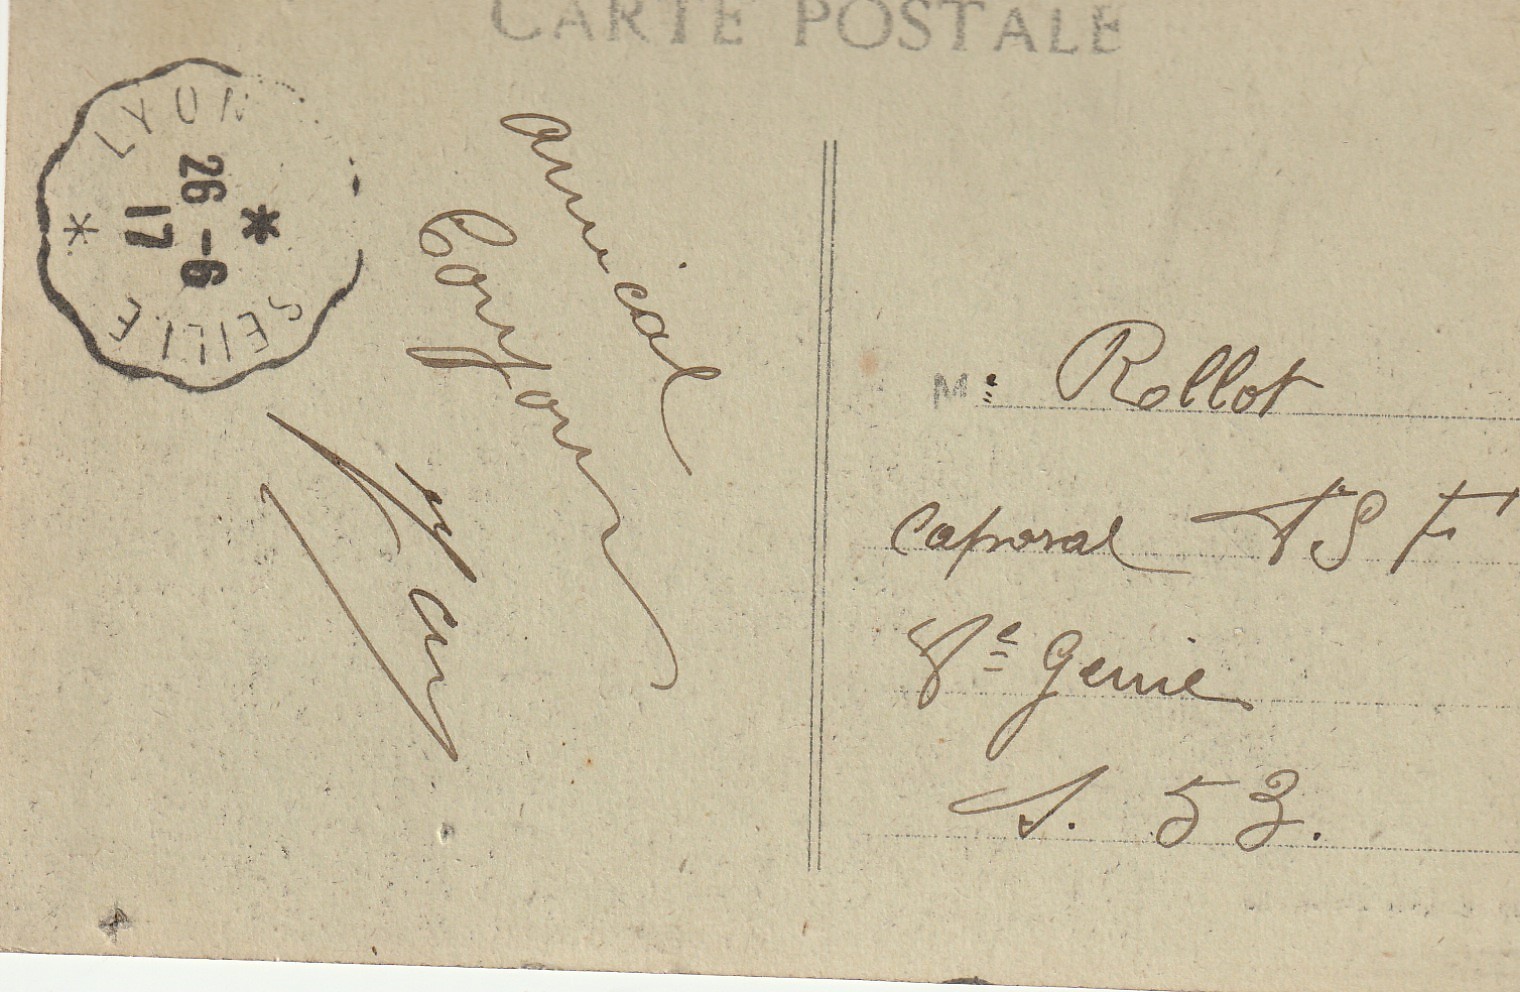 CARTE POSTALE
LYON
26 -6
17
SEILLE
amical
Bonjour
M
Rollot
caporal TSF
Genie
S. 53.